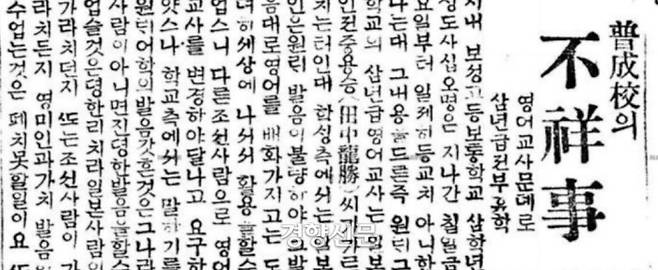 普成校의
不祥事
영어교사문뎨로
삼년급전부휴학
시내 보성고등보통학교 삼학년
생도사십오명은 지나간 칠일금
요일부터 일제히등교치 아니한
다는대 그내용을드른즉 원뎌그
학교의 삼년급영어교사는 일본
인뎐중용승(田中龍勝)씨가가르
치는터인대 학생측에서는 일본
인은원뎌 발음이불량하야 그발
음대로영어를 배화가지고는 도
뎌히세상에 나서서 활용할수
업스니 다른조선사람으로 영어
교사를 변경하야달나고 요구하
얏스나 학교측에서는 말하기를
원뎌어학의발음갓흔것은그나라
사람이아니면진뎡한발음을할수
업슬것은뎡한리치라일본사람이
가라치던지 또는조선사람이 가
라치든지 영미인과가치 발음할
수업는것은 폐치못할일이요 또
경향신문